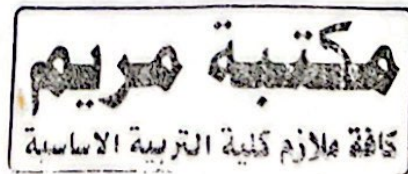 مكتبة مريم
كافة ملازم كلية التربية الاساسية